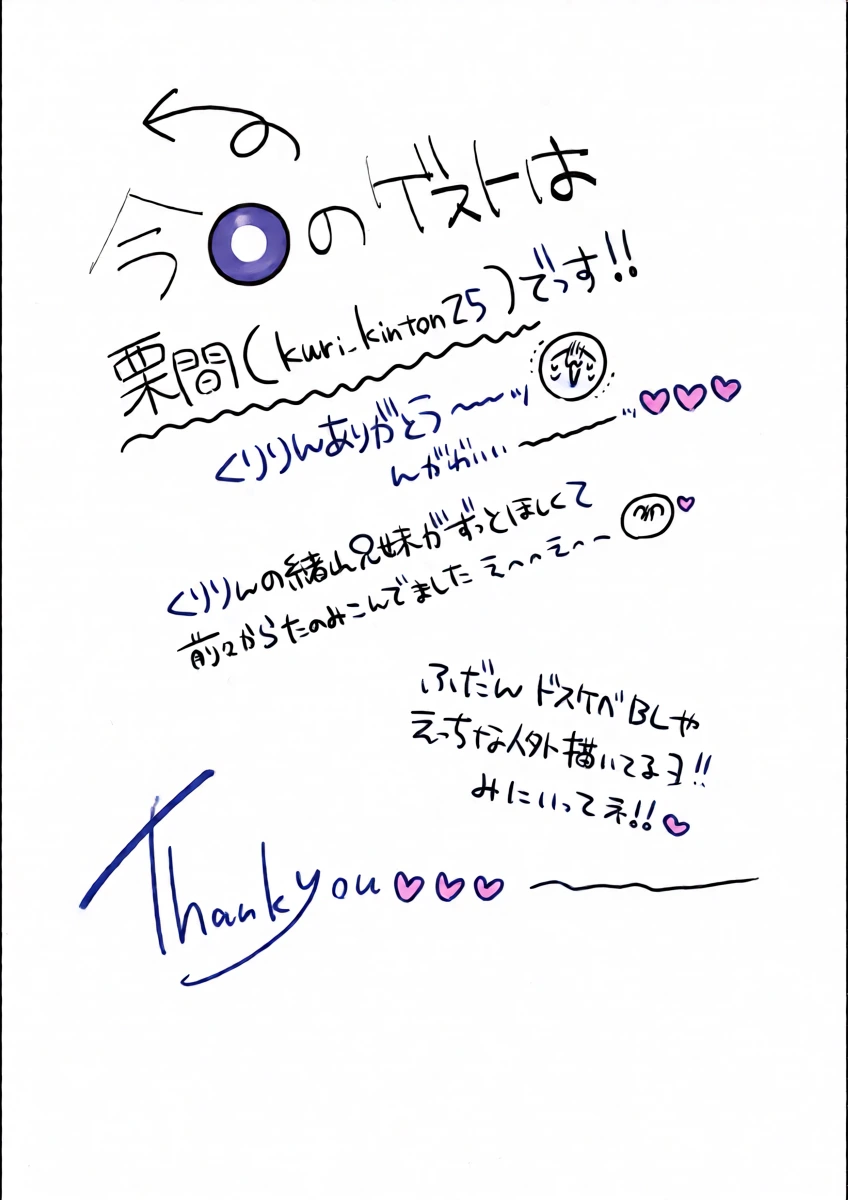 今回のゲストは
栗間(kuri_kinton25)でっす!!
くりりんありがとう〜〜ッ
んがわいい
くりりんの緒山兄妹がずっとほしくて
前々からたのみこんでました えへへえへー
ふだん ドスケベBLや
えっちな人外描いてるヨ!!
みにいってネ!!
Thank you